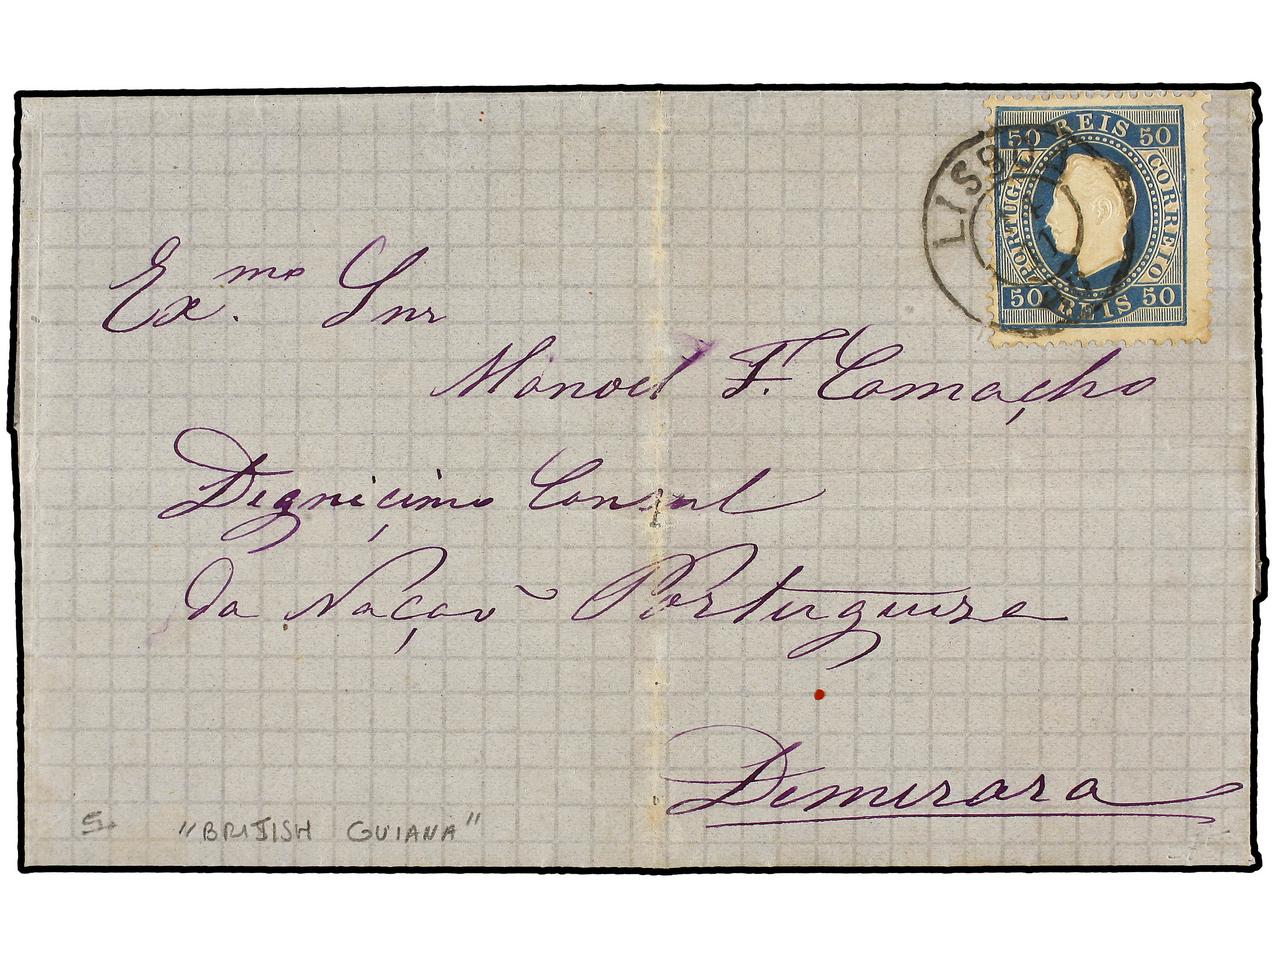 50 REIS 50
PORTUGAL
CORREIO
50 REIS 50
LISBOA
Ex.mo Snr
Manoel F. Camacho
Dignicimo Consul
da Nação Portugueza
Demerara
"BRITISH GUIANA"